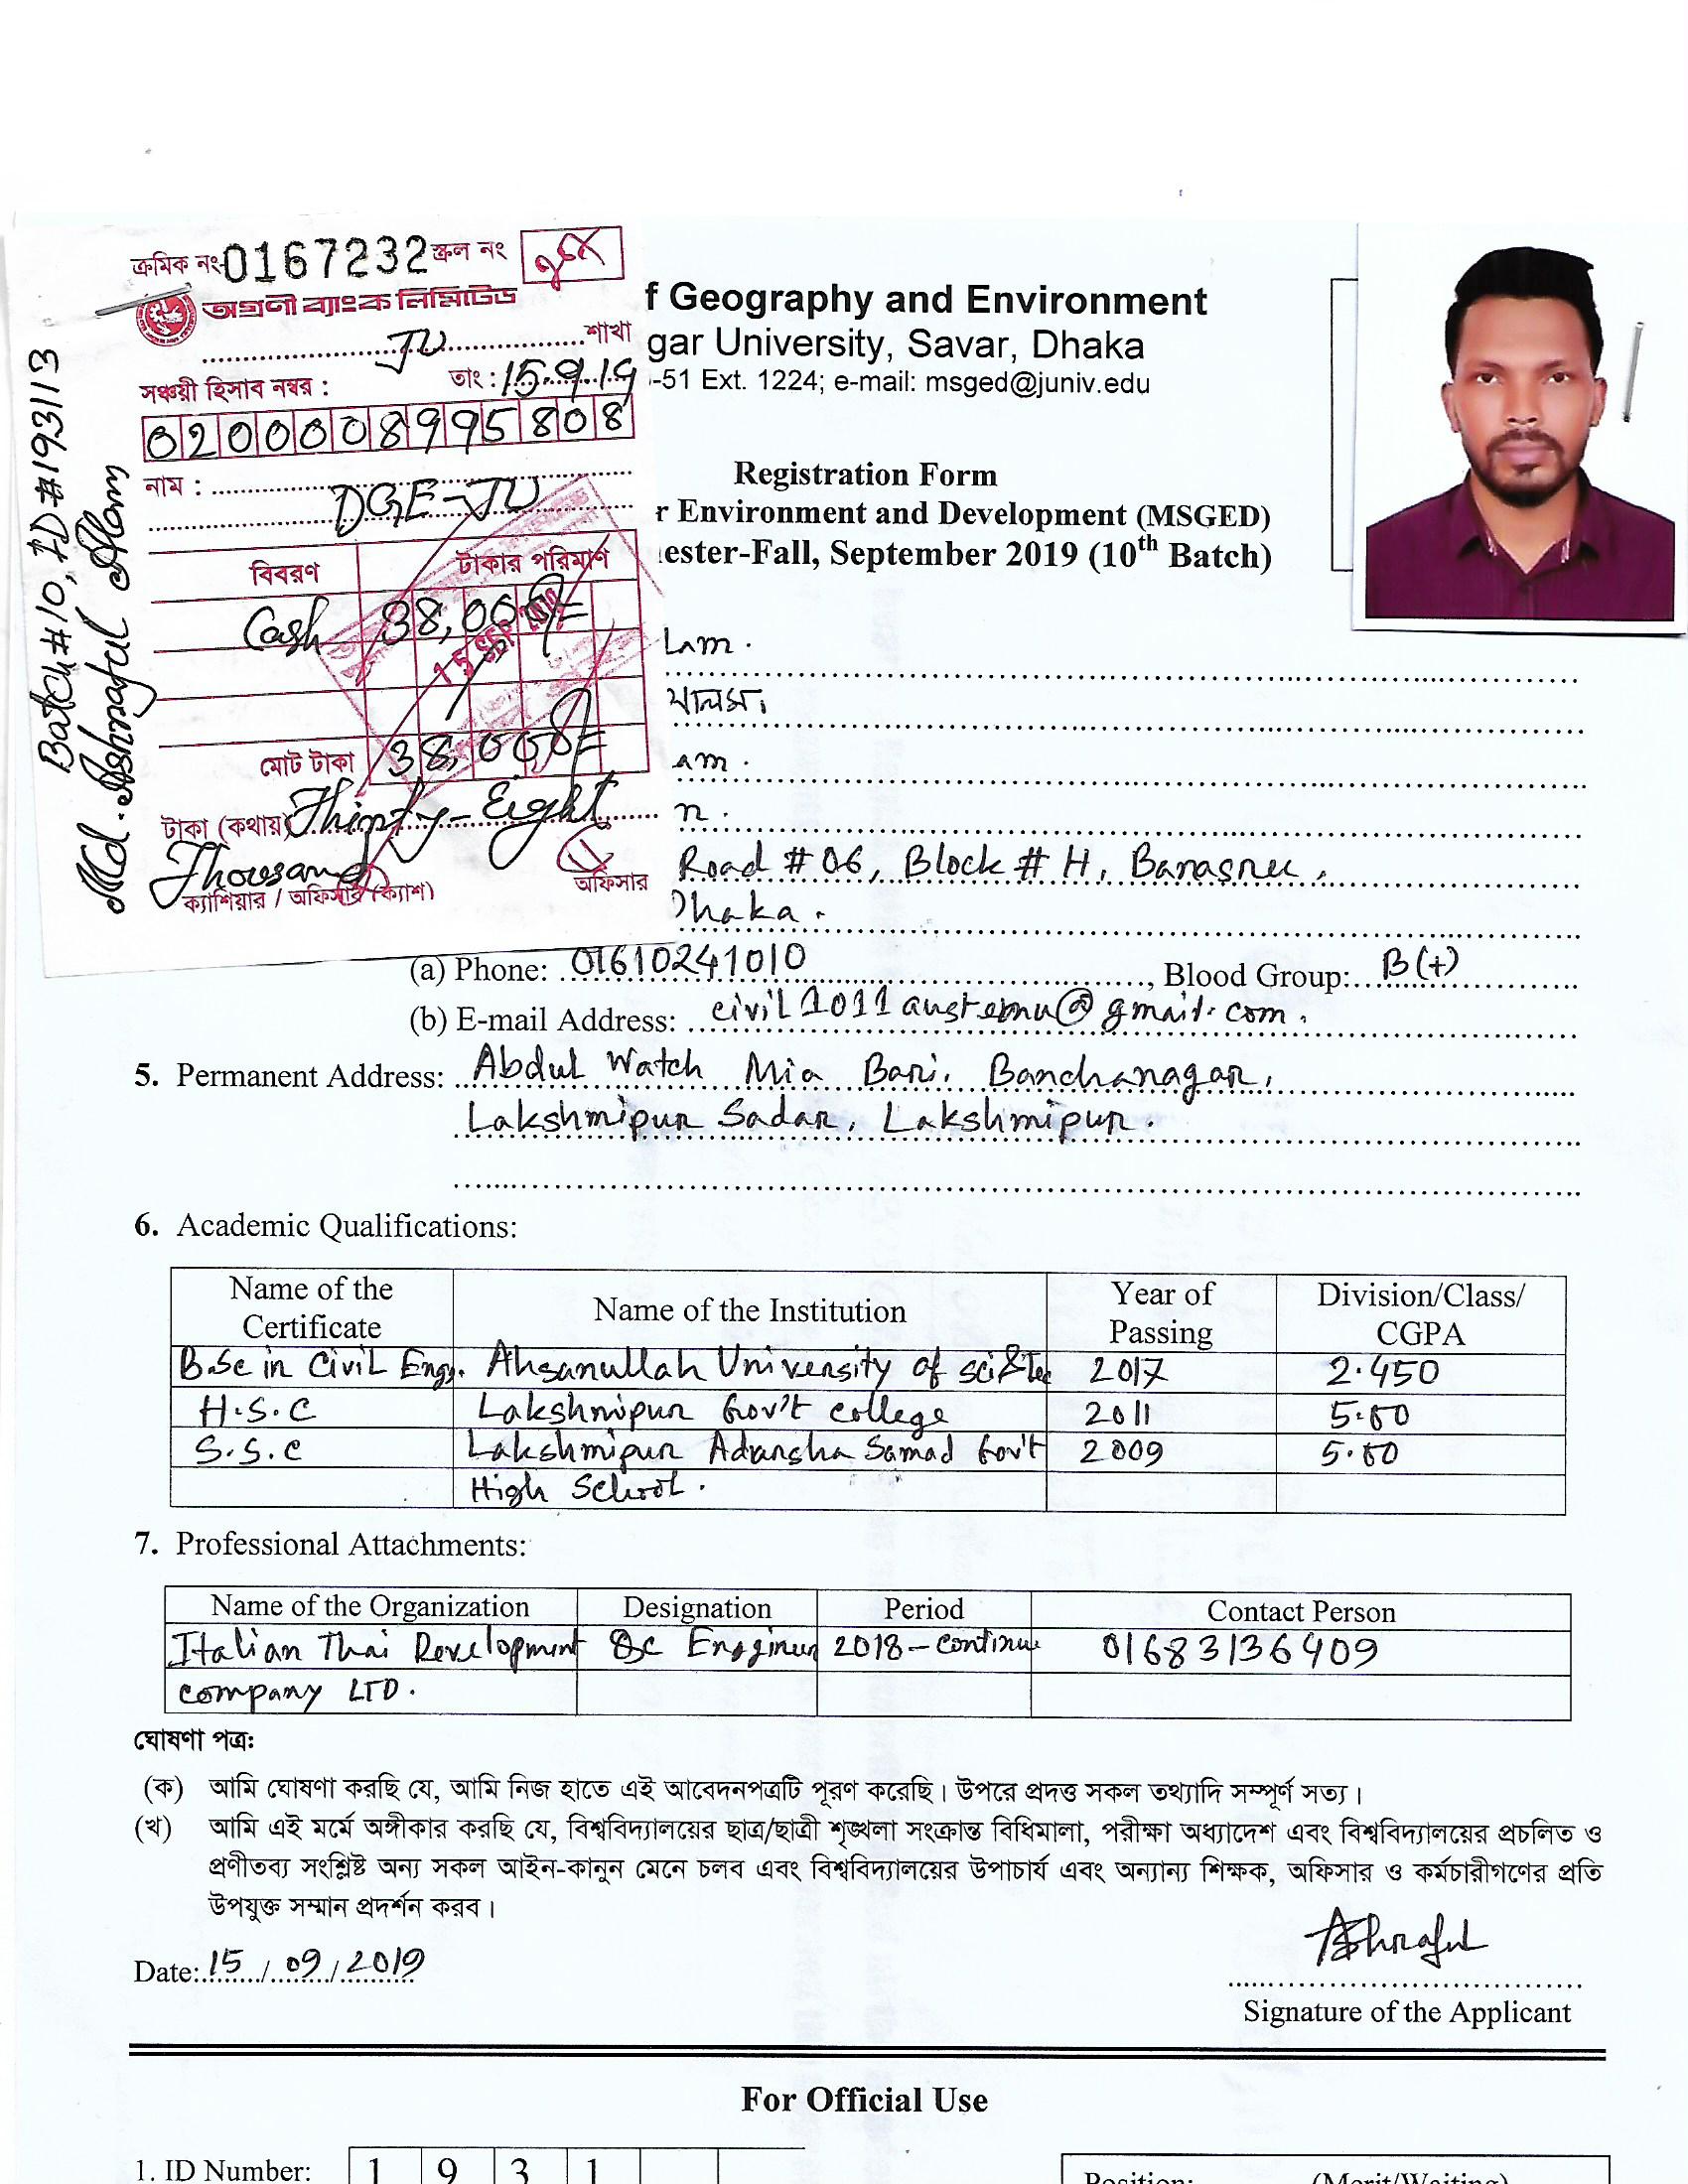 ক্রমিক নং 0167232 স্ক্রল নং
অগ্রনী ব্যাংক লিমিটেড
JU শাখা
সঞ্চয়ী হিসাব নম্বর : তাং : 15.9.19
0200008995808
নাম :
DGE-JU
বিবরণ টাকার পরিমাণ
Cash 38,000/=
15 SEP 2019
মোট টাকা 38,000/=
টাকা (কথায়) Thirty-Eight
Thousand
ক্যাশিয়ার / অফিসার (ক্যাশ) অফিসার
Batch#10, ID#193113
Md. Ashraful Alam
f Geography and Environment
gar University, Savar, Dhaka
-51 Ext. 1224; e-mail: msged@juniv.edu
Registration Form
r Environment and Development (MSGED)
ester-Fall, September 2019 (10th Batch)
Lam.
আলম।
am.
n.
Road # 06, Block # H, Banasree,
Dhaka.
(a) Phone: 01610241010, Blood Group: B(+)
(b) E-mail Address: civil1011austemu@gmail.com.
5. Permanent Address: Abdul Watch Mia Bari, Banchanagar,
Lakshmipur Sadar, Lakshmipur.
6. Academic Qualifications:
Name of the Certificate Name of the Institution Year of Passing Division/Class/ CGPA
B.Sc in Civil Eng. Ahsanullah University of Sci&Tec 2017 2.450
H.S.C Lakshmipur Gov't college 2011 5.00
S.S.C Lakshmipur Adarsha Samad Gov't 2009 5.00
High School.
7. Professional Attachments:
Name of the Organization Designation Period Contact Person
Italian Thai Development Qc Engineer 2018-continue 01683136409
company LTD.
ঘোষণা পত্র:
(ক) আমি ঘোষণা করছি যে, আমি নিজ হাতে এই আবেদনপত্রটি পূরণ করেছি। উপরে প্রদত্ত সকল তথ্যাদি সম্পূর্ণ সত্য।
(খ) আমি এই মর্মে অঙ্গীকার করছি যে, বিশ্ববিদ্যালয়ের ছাত্র/ছাত্রী শৃঙ্খলা সংক্রান্ত বিধিমালা, পরীক্ষা অধ্যাদেশ এবং বিশ্ববিদ্যালয়ের প্রচলিত ও
প্রণীতব্য সংশ্লিষ্ট অন্য সকল আইন-কানুন মেনে চলব এবং বিশ্ববিদ্যালয়ের উপাচার্য এবং অন্যান্য শিক্ষক, অফিসার ও কর্মচারীগণের প্রতি
উপযুক্ত সম্মান প্রদর্শন করব।
Date: 15/09/2019 Ashraful
Signature of the Applicant
For Official Use
1. ID Number: 1 9 3 1
Position: (Merit/Waiting)